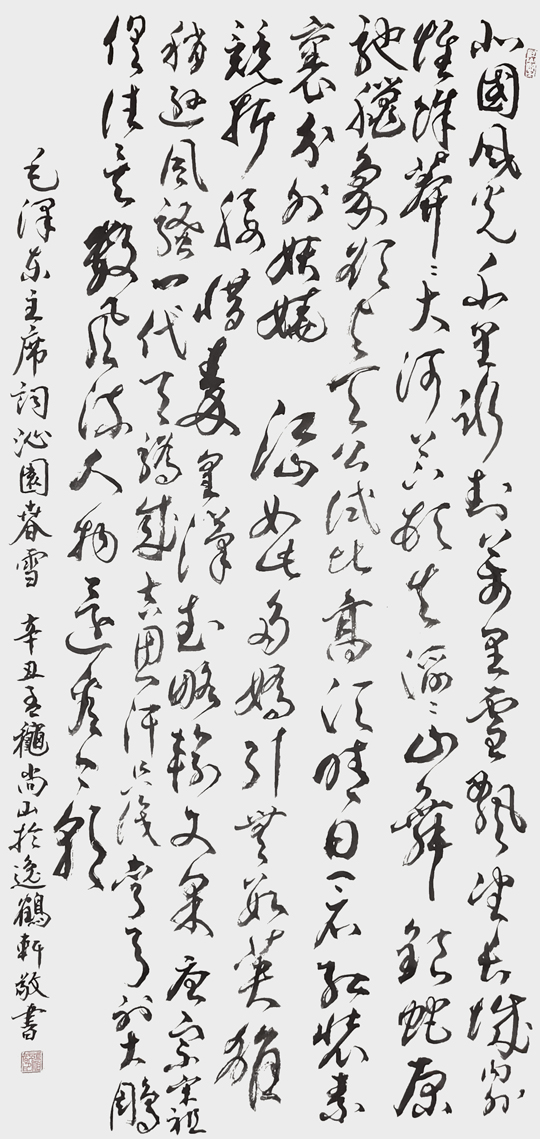 北國風光千里冰封萬里雪飄望長城內外
惟餘莽々大河上下頓失滔々山舞銀蛇原
馳蠟象欲與天公試比高須晴日看紅裝素
裹分外妖嬈 江山如此多嬌引無數英雄
競折腰惜秦皇漢武略輸文采唐宗宋祖
稍遜風騷一代天驕成吉思汗只識彎弓射大鵰
俱往矣數風流人物還看今朝
毛澤東主席詞沁園春雪 辛丑孟穐尚山於逸鶴軒敬書